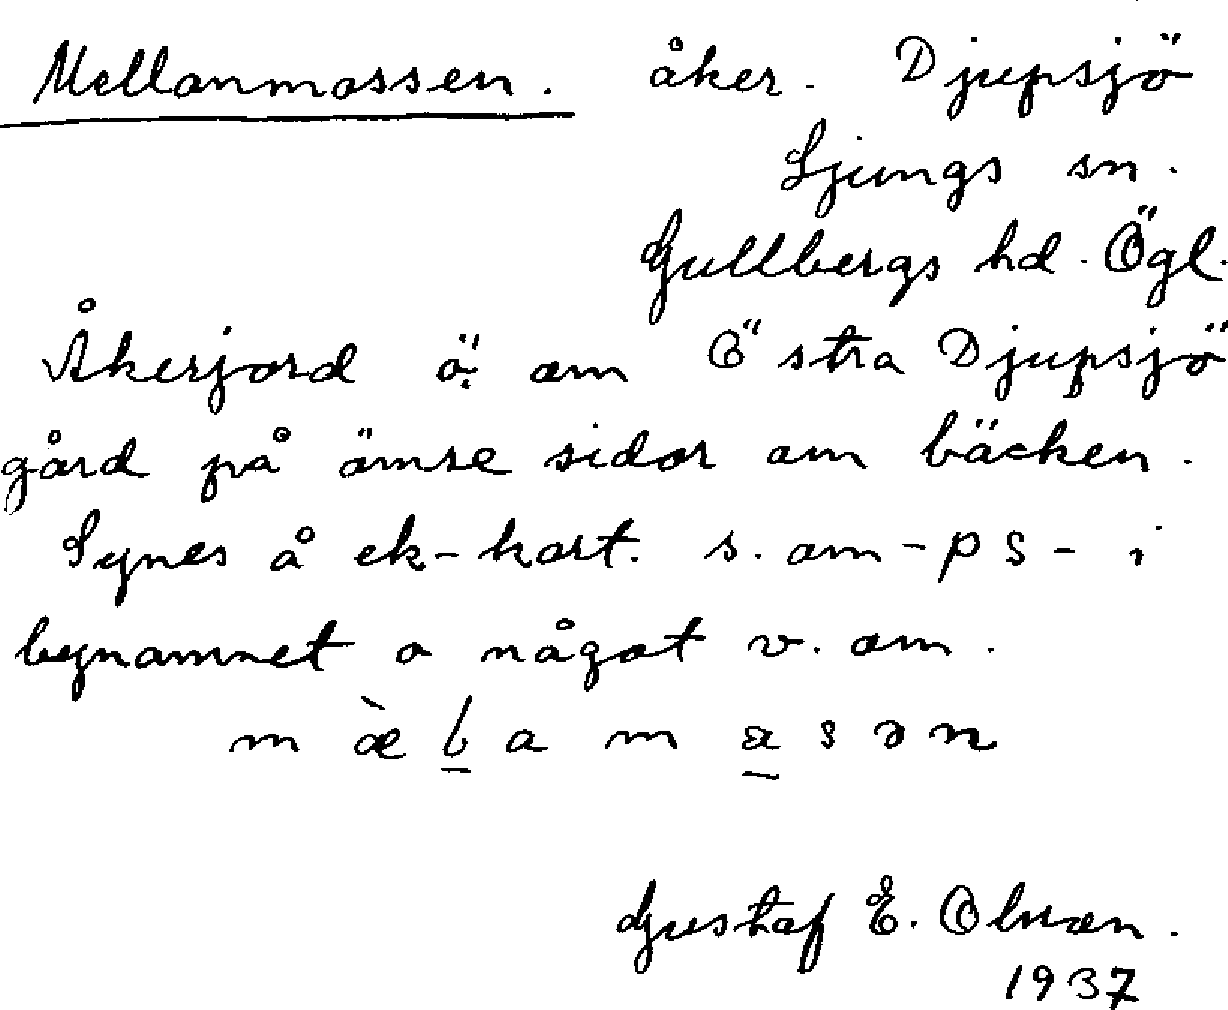 Mellanmossen. åker. Djupsjö
Ljungs sn.
Gullbergs hd. Ögl.
Åkerjord ö. om Östra Djupsjö
gård på ömse sidor om bäcken.
Synes å ek-kart. s. om -ps- i
bynamnet o något v. om.
Gustaf E. Olsson.
1937